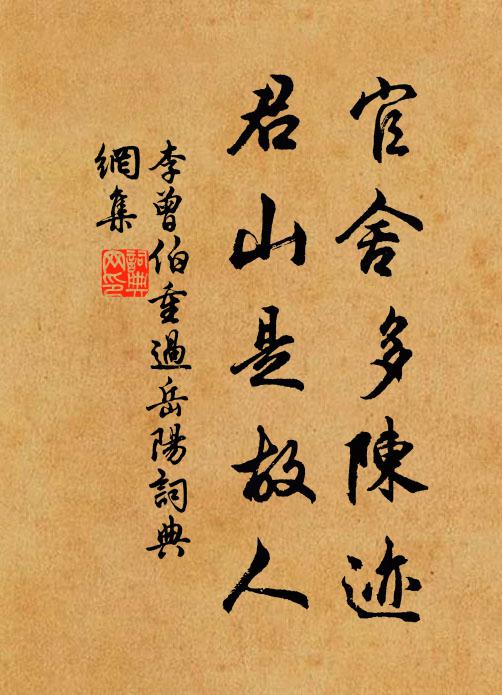 官舍多陳迹
君山是故人
李曾伯重過岳陽詞典
網集
詞典
网印